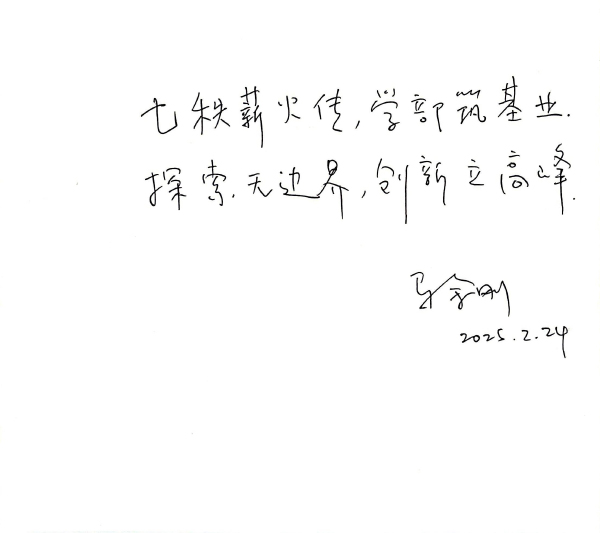 七秩薪火传,学部筑基业.
探索.无边界,创新立高峰.
马余刚
2025.2.24